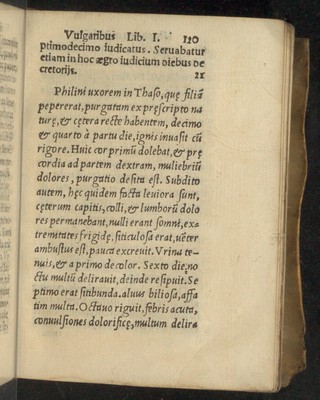 Vulgaribus Lib. I. 120
ptimodecimo iudicatus. Seruabatur
etiam in hoc ægro iudicium diebus de
cretorijs. 21
Philini uxorem in Thaso, quę filiã
pepererat, purgatam ex pręscripto na
turę, & cętera recte habentem, decimo
& quarto à partu die, ignis inuasit cũ
rigore. Huic cor primũ dolebat, & prę
cordia ad partem dextram, muliebriũ
dolores, purgatio desita est. Subdito
autem, hęc quidem facta leuiora sunt,
cęterum capitis, colli, & lumborũ dolo
res permanebant, nulli erant somni, ex=
tremitates frigidę, siticulosa erat, uẽter
ambustus est, pauca excreuit. Vrina te=
nuis, & a primo decolor. Sexto die, no
ctu multũ delirauit, deinde resipuit. Se
ptimo erat sitibunda. aluus biliosa, affa
tim multa. Octauo riguit, febris acuta,
conuulsiones dolorificę, multum delira